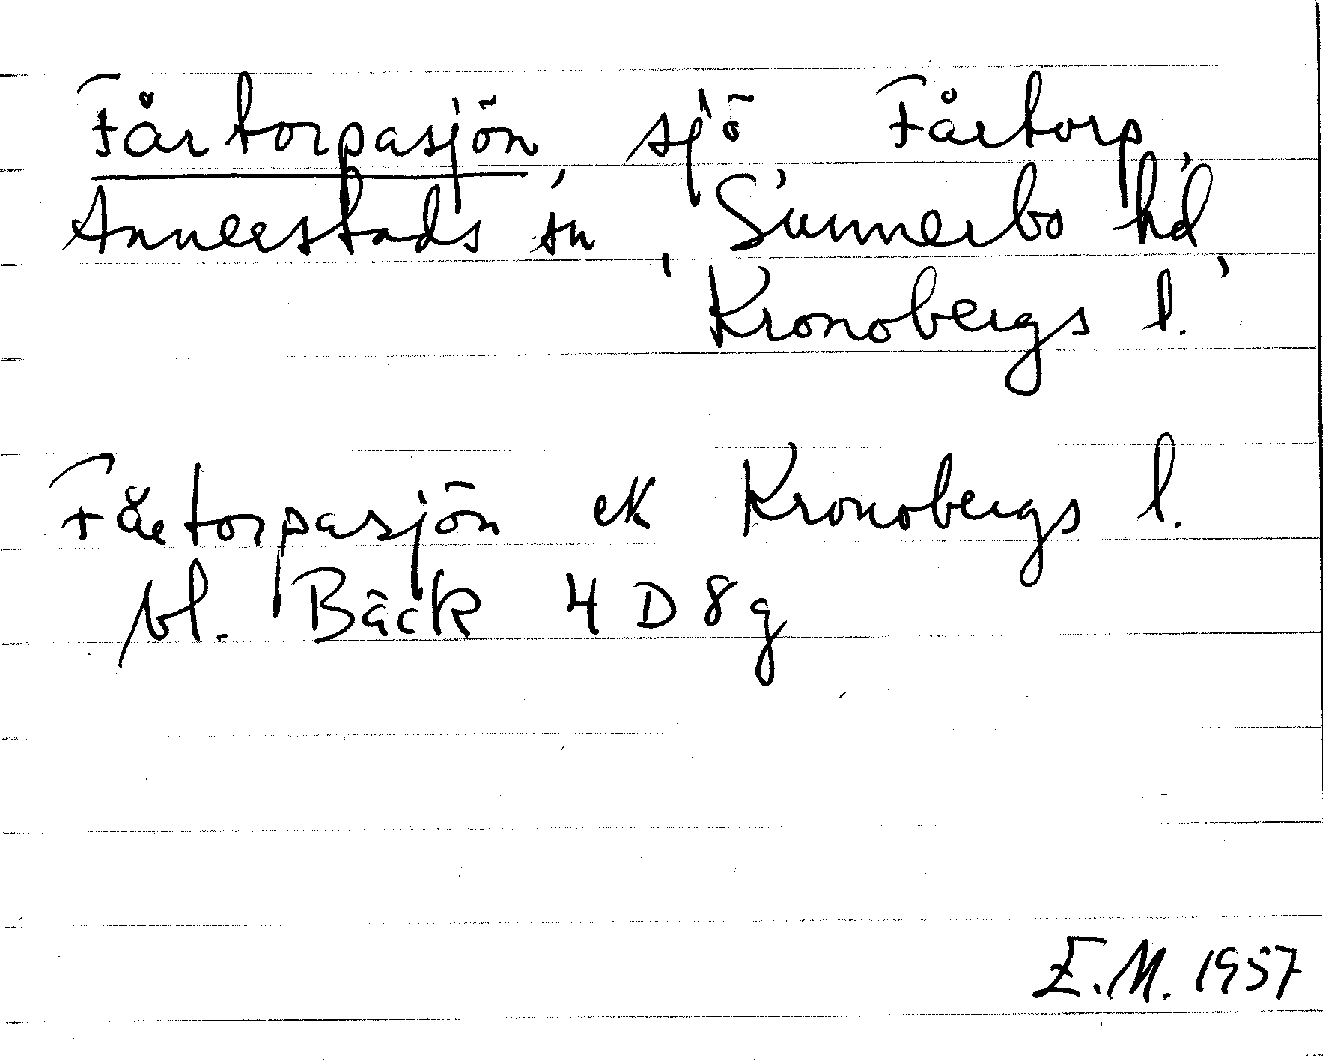 Fårtorpasjön, sjö Fårtorp,
Annerstads sn, Sunnerbo hd,
Kronobergs l.
Fårtorpasjön ek Kronobergs l.
bl. Bäck 4 D 8 g
E.M. 1957